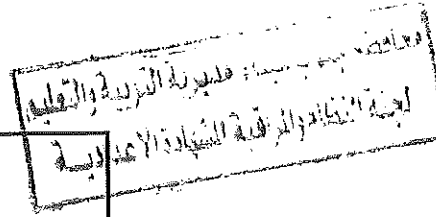 محافظة جنوب سيناء مديرية التربية والتعليم
لجنة النظام والمراقبة الشهادة الاعدادية